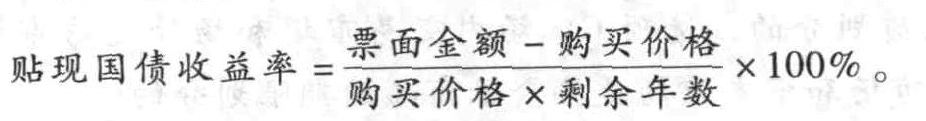 贴现国债收益率 = 票面金额 - 购买价格 / 购买价格 × 剩余年数 × 100%。